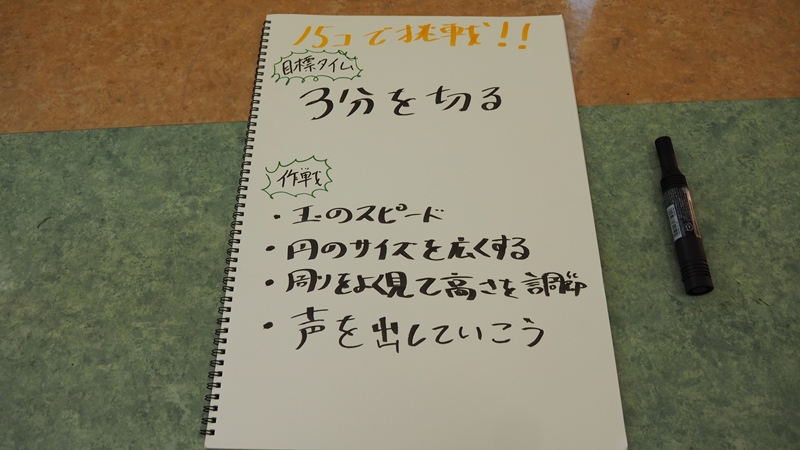 15コで挑戦!!
目標タイム
3分を切る
作戦
・玉のスピード
・円のサイズを広くする
・周りをよく見て高さを調節
・声を出していこう